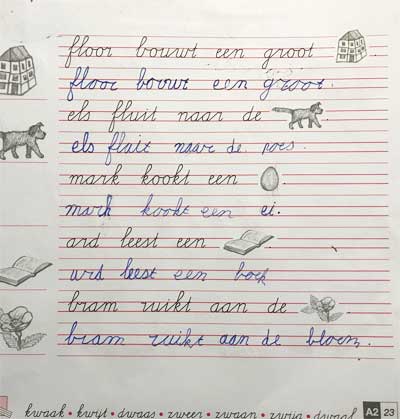 floor bouwt een groot .
floor bouwt een groot.
els fluit naar de .
els fluit naar de poes.
mark kookt een .
mark kookt een ei.
ard leest een .
ard leest een boek
bram ruikt aan de .
bram ruikt aan de bloem.
kwaak • kwijt • dwaas • zweer • zwaan • zwijn • dwaal
A2 23